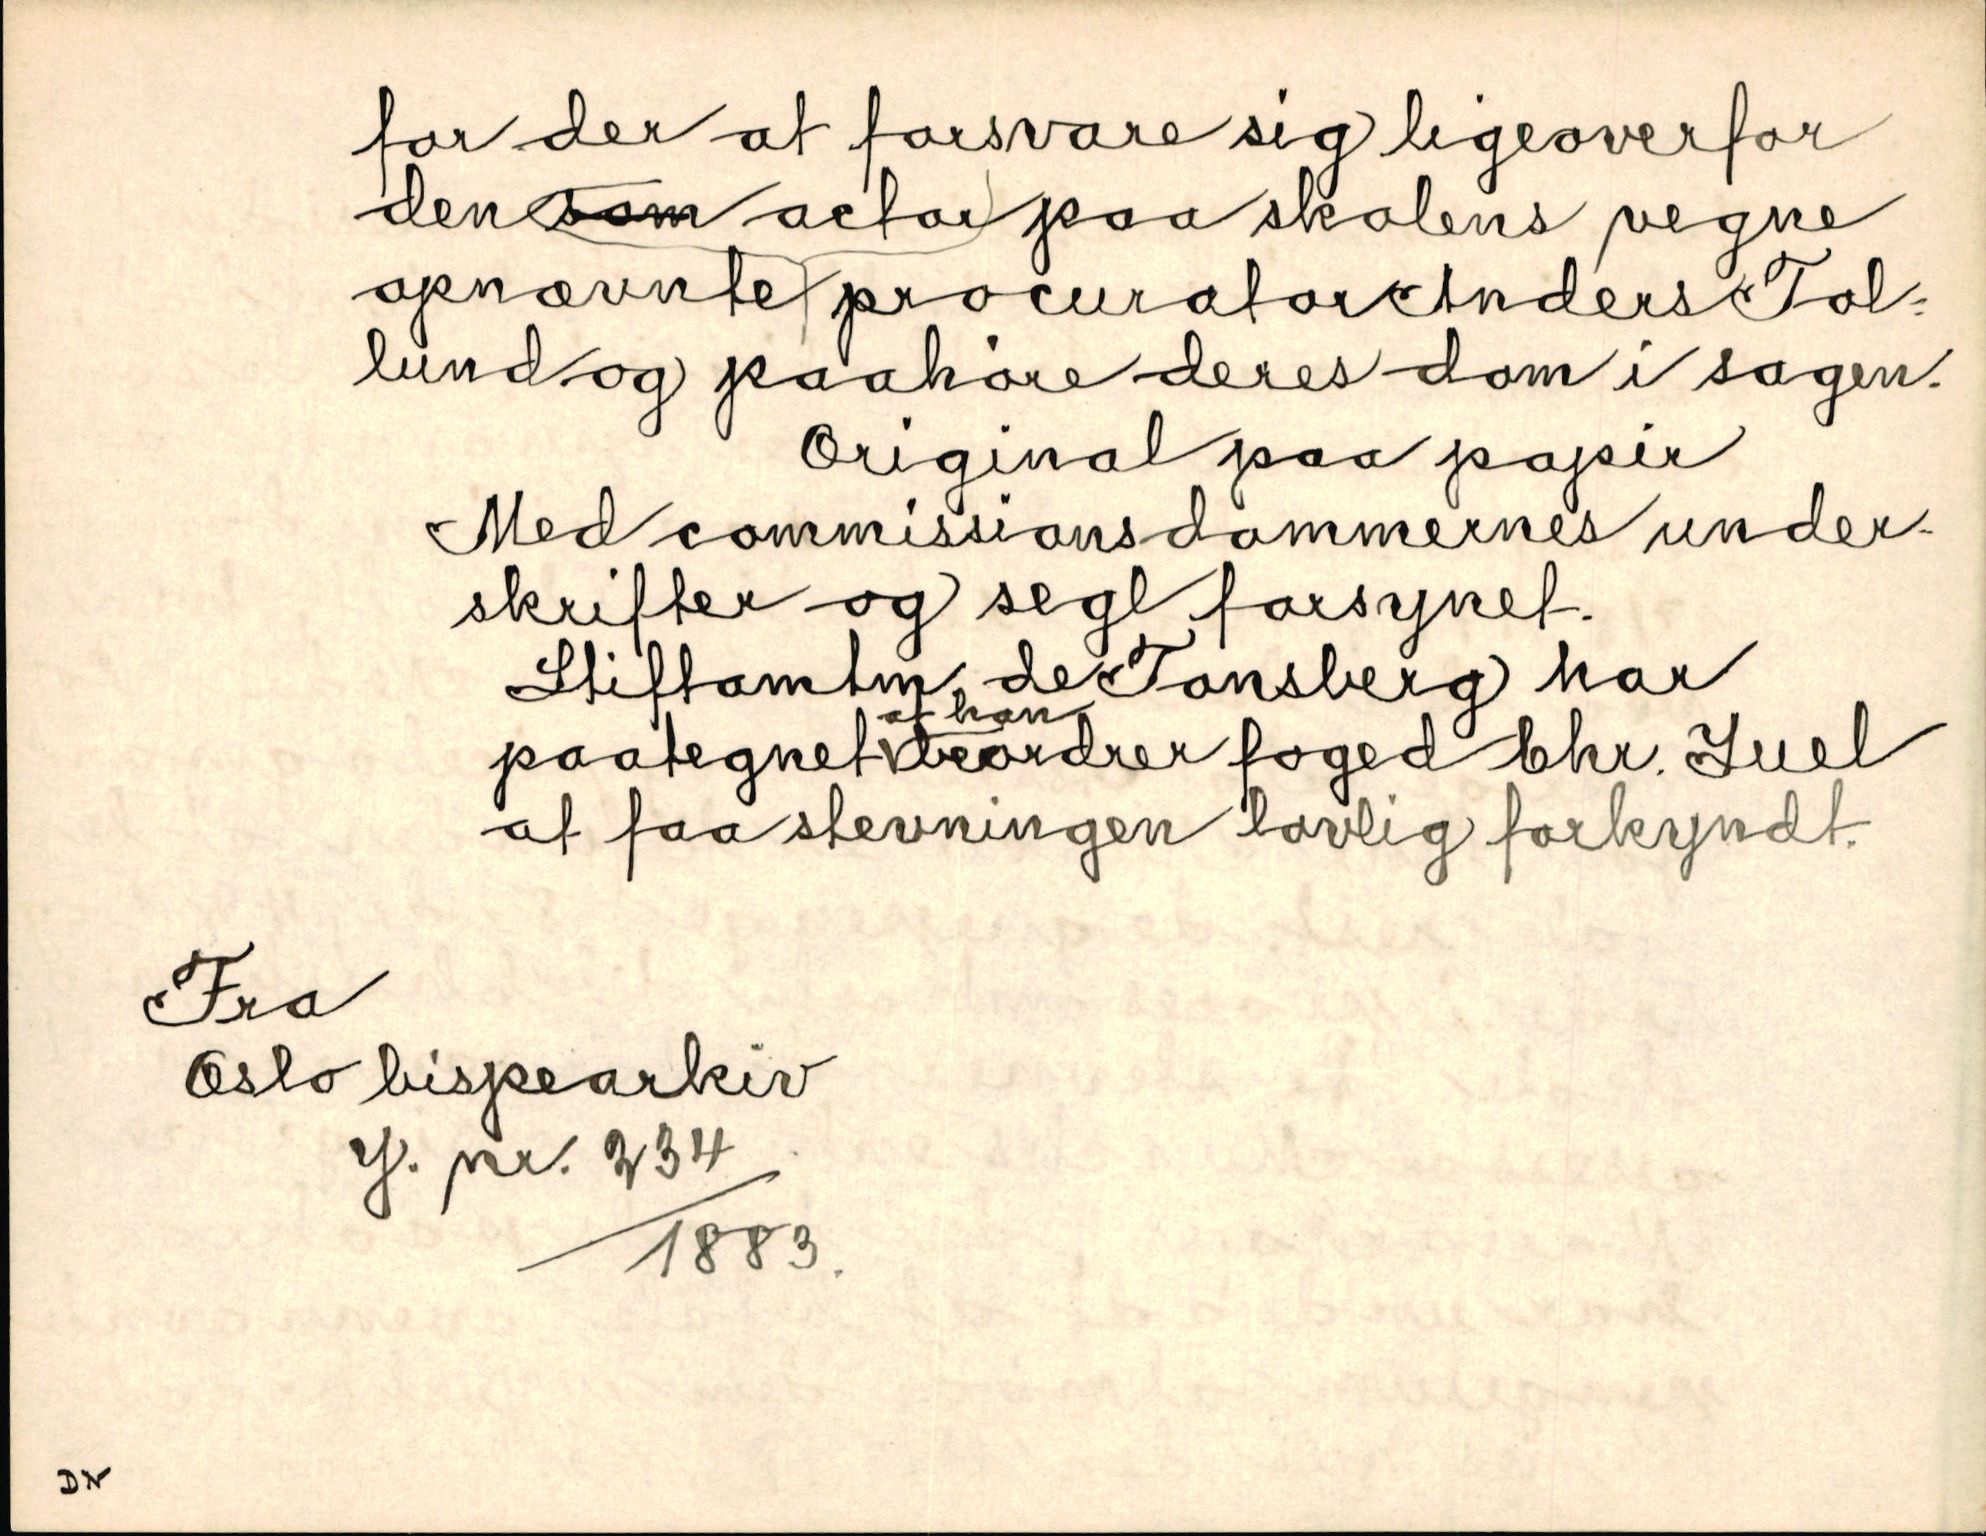 for der at forsvare sig ligeoverfor
den som actor paa skolens vegne
opnævnte procurator Anders Tol-
lund og paahøre deres dom i sagen.
Original paa papir
Med commissionsdommernes under-
skrifter og segl forsynet.
Stiftamtm, de Tonsberg har
at han
paategnet beordrer foged Chr. Juel
at faa stevningen lovlig forkyndt.
Fra
Oslo bispearkiv
J. nr. 234
1883.
DN